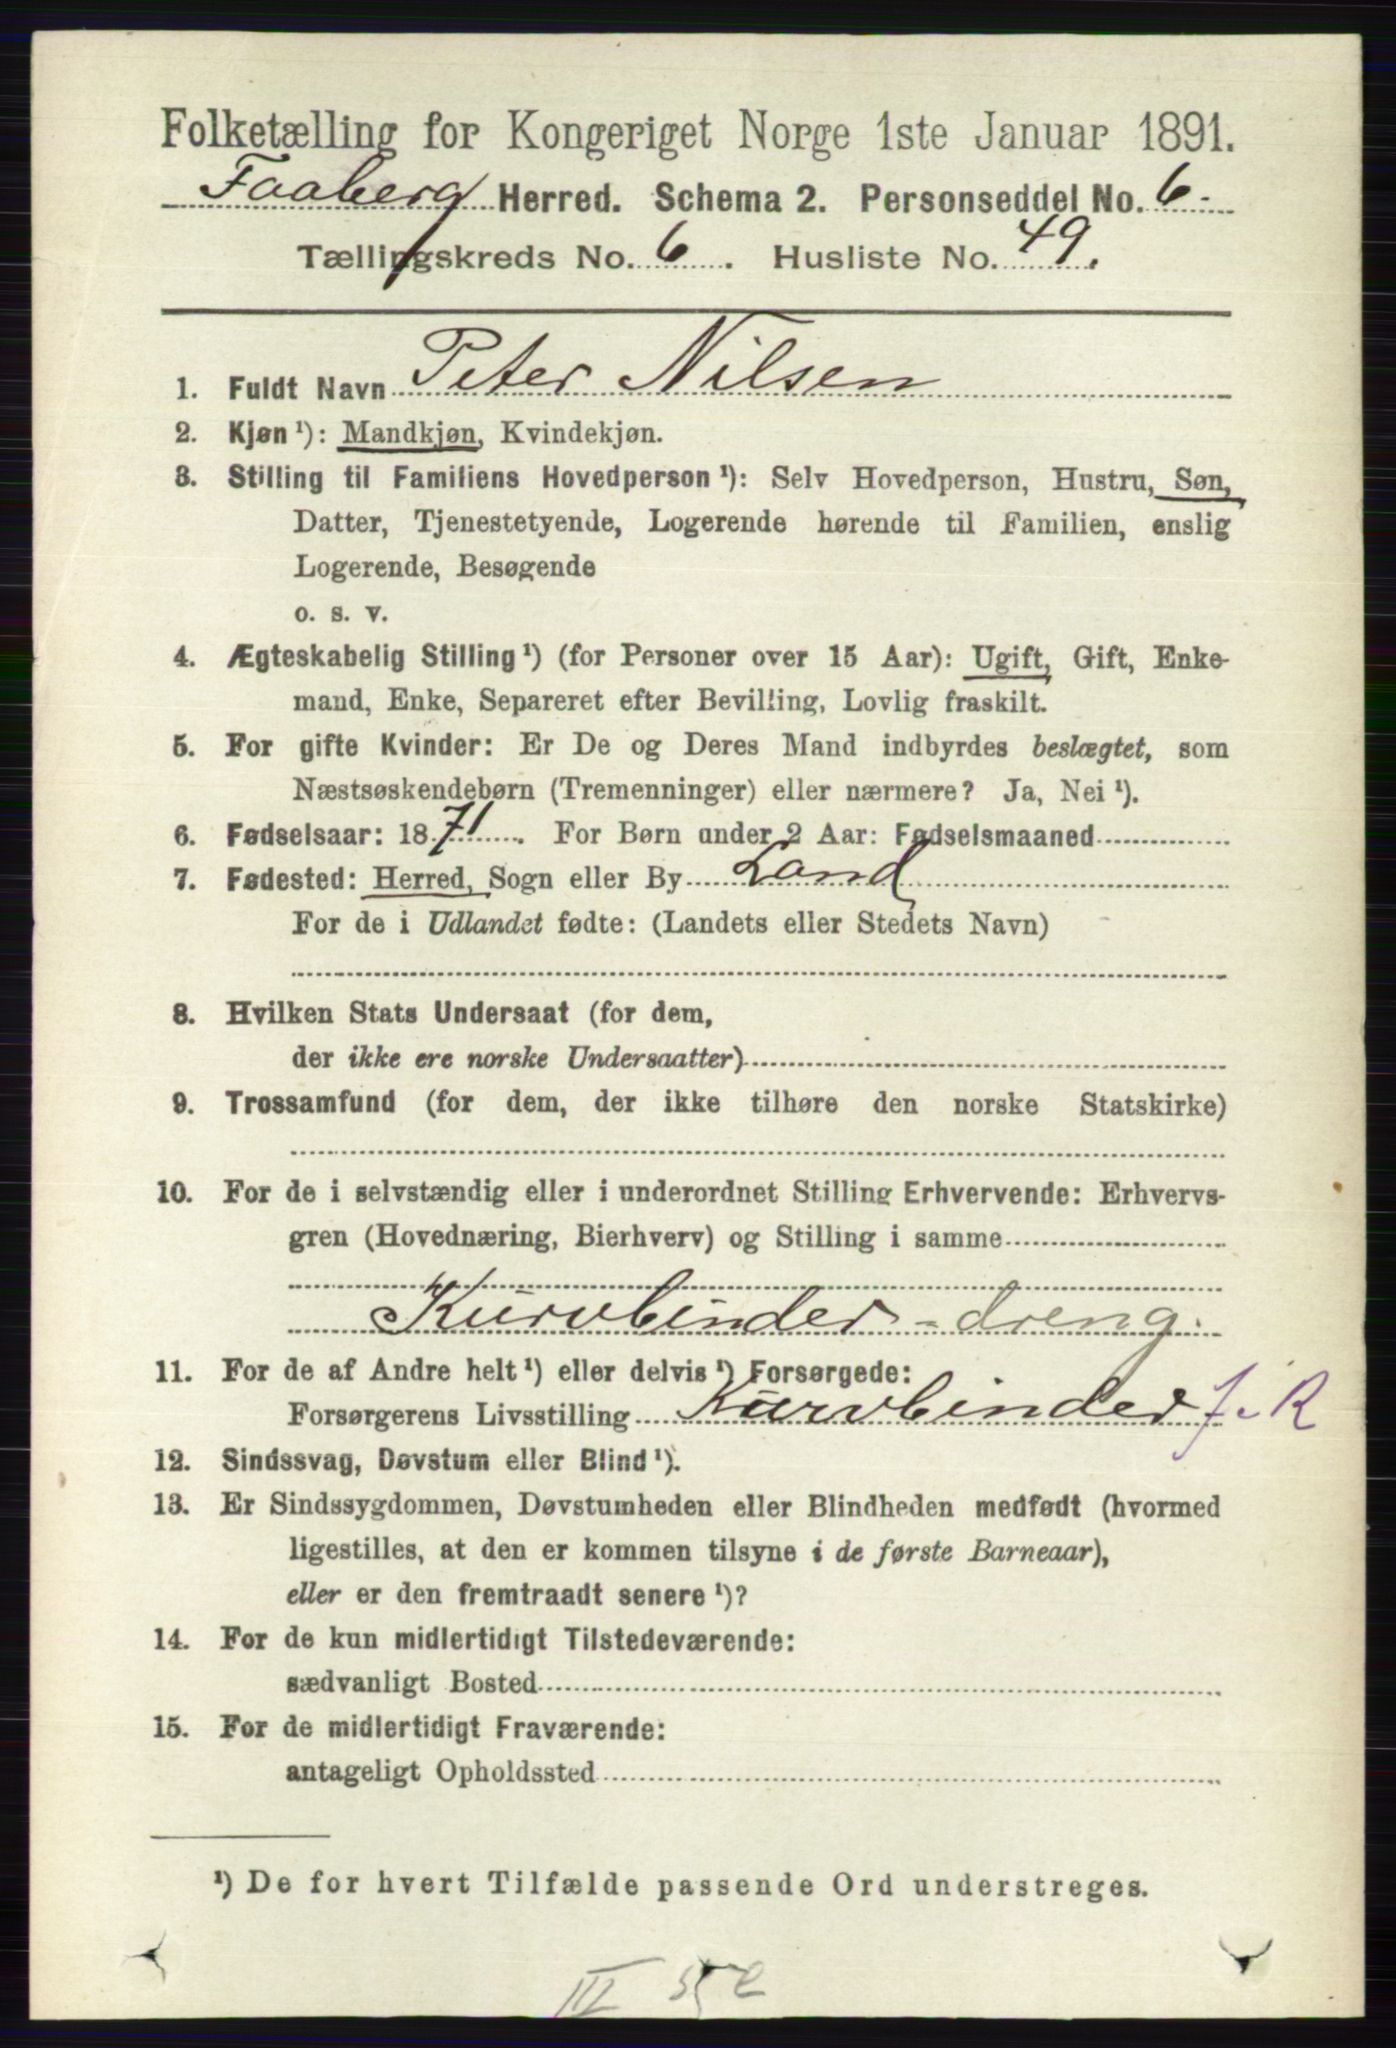 Folketælling for Kongeriget Norge 1ste Januar 1891.
Faaberg Herred. Schema 2. Personseddel No. 6.
Tællingskreds No. 6. Husliste No. 49.
1. Fuldt Navn Peter Nilsen
2. Kjøn ¹): Mandkjøn, Kvindekjøn.
3. Stilling til Familiens Hovedperson ¹): Selv Hovedperson, Hustru, Søn,
Datter, Tjenestetyende, Logerende hørende til Familien, enslig
Logerende, Besøgende
o. s. v.
4. Ægteskabelig Stilling ¹) (for Personer over 15 Aar): Ugift, Gift, Enke-
mand, Enke, Separeret efter Bevilling, Lovlig fraskilt.
5. For gifte Kvinder: Er De og Deres Mand indbyrdes beslægtet, som
Næstsøskendebørn (Tremenninger) eller nærmere? Ja, Nei ¹).
6. Fødselsaar: 1871. For Børn under 2 Aar: Fødselsmaaned
7. Fødested: Herred, Sogn eller By Land
For de i Udlandet fødte: (Landets eller Stedets Navn)
8. Hvilken Stats Undersaat (for dem,
der ikke ere norske Undersaatter)
9. Trossamfund (for dem, der ikke tilhøre den norske Statskirke)
10. For de i selvstændig eller i underordnet Stilling Erhvervende: Erhvervs-
gren (Hovednæring, Bierhverv) og Stilling i samme
Kurvbinder-dreng.
11. For de af Andre helt ¹) eller delvis ¹) Forsørgede:
Forsørgerens Livsstilling Kurvbinder J. R
12. Sindssvag, Døvstum eller Blind ¹).
13. Er Sindssygdommen, Døvstumheden eller Blindheden medfødt (hvormed
ligestilles, at den er kommen tilsyne i de første Barneaar),
eller er den fremtraadt senere ¹)?
14. For de kun midlertidigt Tilstedeværende:
sædvanligt Bosted
15. For de midlertidigt Fraværende:
antageligt Opholdssted
¹) De for hvert Tilfælde passende Ord understreges.
III